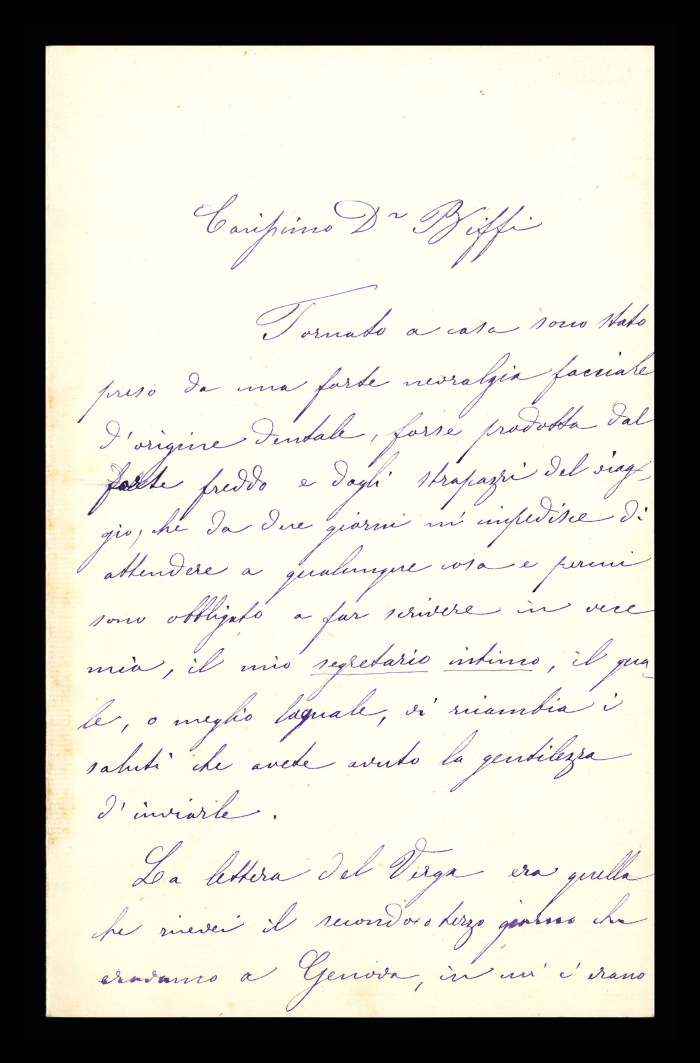 Carissimo Dr Biffi
Tornato a casa sono stato
preso da una forte nevralgia facciale
d'origine dentale, forse prodotta dal
freddo e dagli strapazzi del viag-
gio, che da due giorni m'impedisce di
attendere a qualunque cosa e permi
sono obbligato a far scrivere in vece
mia, il mio segretario intimo, il qua-
le, o meglio laquale, vi ricambia i
saluti che avete avuto la gentilezza
d'inviarle.
La lettera del Verga era quella
che ricevei il secondo o terzo giorno che
eravamo a Genova, in cui c'erano